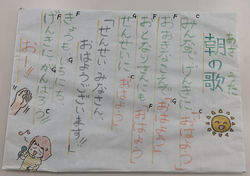 朝の歌
あさ うた
C G C
みんな げんきに おはよう
おおきなこえで おはよう
おとなりさんにも おはよう
せんせいに おはよう
「せんせい みなさん、
おはようございます!!」
きょうも いちにち
げんきに がんばろう
おー!!